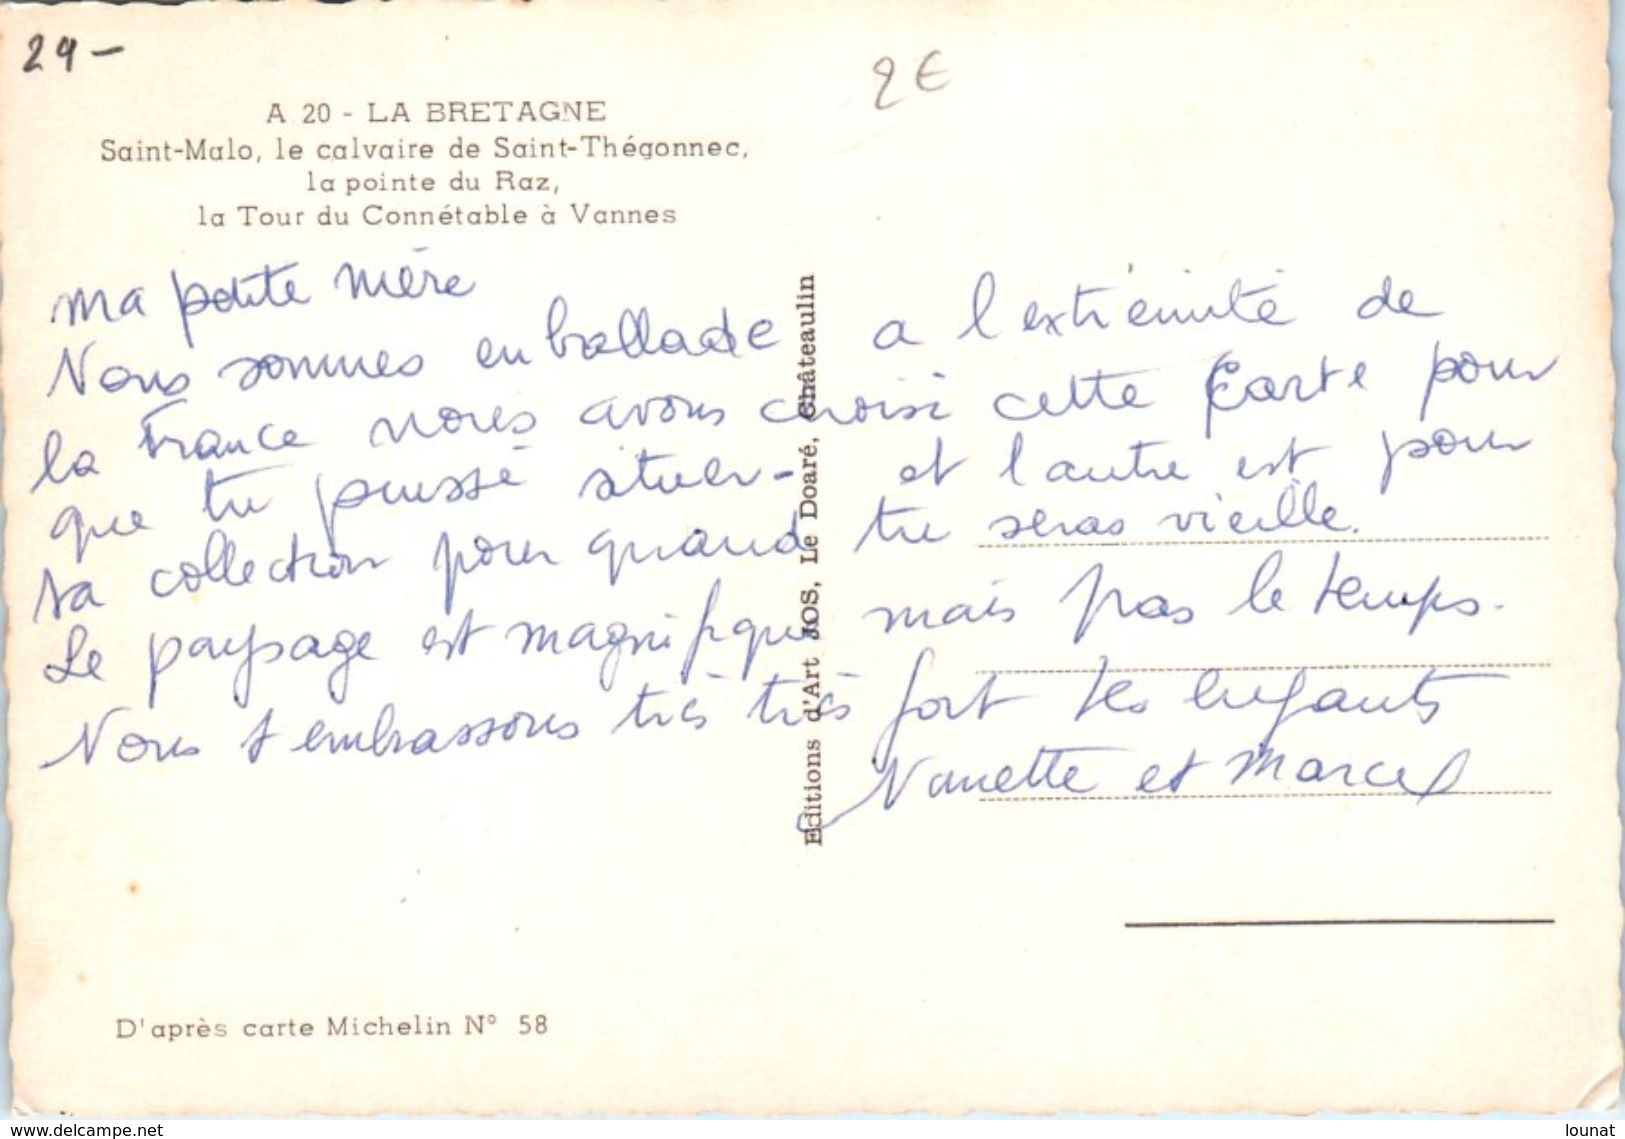 29-
2€
A 20 - LA BRETAGNE
Saint-Malo, le calvaire de Saint-Thégonnec,
la pointe du Raz,
la Tour du Connétable à Vannes
Ma petite mère
Nous sommes en ballade a l'extrémité de
la France nous avons choisi cette Carte pour
que tu puisse situer - et l'autre est pour
ta collection pour quand tu seras vieille.
Le paysage est magnifique mais pas le temps.
Nous t'embrassons très très fort tes enfants
Nanette et Marcel
Editions d'Art JOS, Le Doaré, Châteaulin
D'après carte Michelin N° 58
www.delcampe.net
lounat